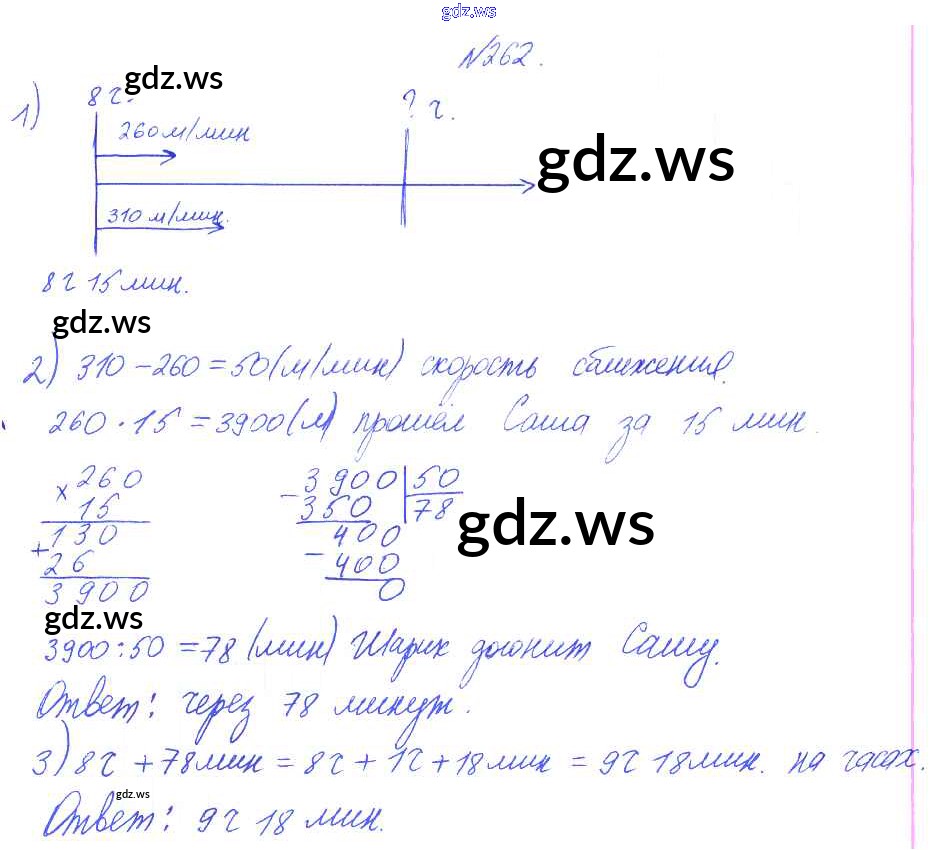 gdz.ws
№262.
gdz.ws
1) 8 г. ? г.
260 м/мин
gdz.ws
310 м/мин.
8 г 15 мин.
gdz.ws
2) 310 - 260 = 50 (м/мин) скорость сближения.
260 · 15 = 3900 (м) прошёл Саша за 15 мин.
× 260
15
+ 130
26
3900
- 3900 | 50
350 78
- 400
400
0
gdz.ws
gdz.ws
3900 : 50 = 78 (мин) Шарик догонит Сашу.
Ответ: через 78 минут.
3) 8 г + 78 мин = 8 г + 1 г + 18 мин = 9 г 18 мин. на часах.
gdz.ws
Ответ: 9 г 18 мин.